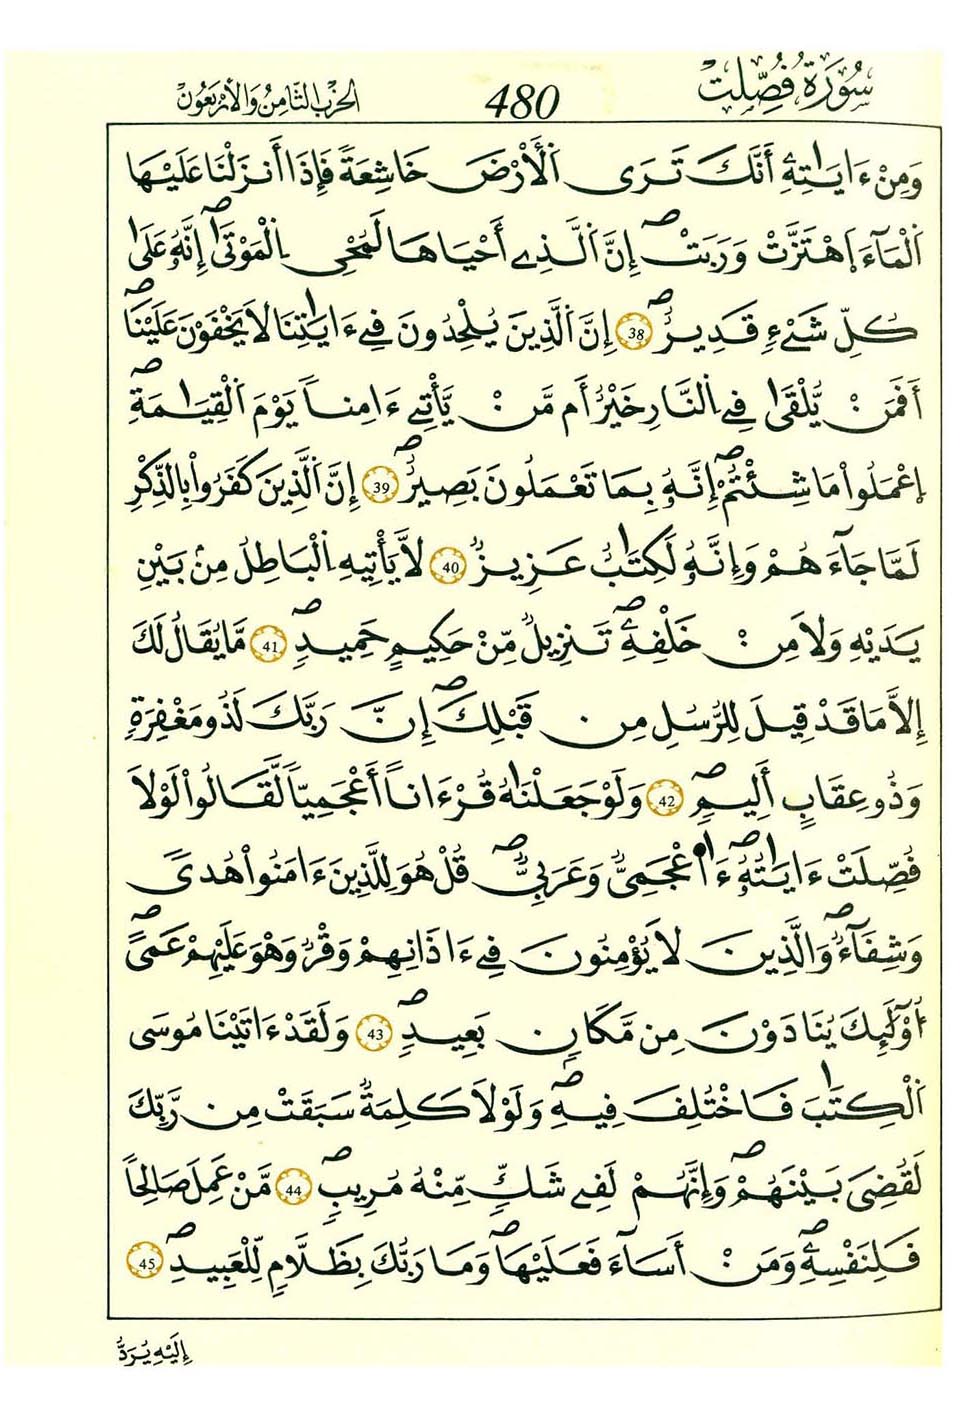 سُورَةُ فُصِّلَتْ 480 الحِزْبُ الثَّامِنُ وَالأَرْبَعُونَ
وَمِنْ ءَايَٰتِهِۦٓ أَنَّكَ تَرَى اَ۬لْأَرْضَ خَٰشِعَةٗ فَإِذَا أَنزَلْنَا عَلَيْهَا
اَ۬لْمَآءَ اَ۪هْتَزَّتْ وَرَبَتْۖ إِنَّ اَ۬لَّذِےٓ أَحْيَاهَا لَمُحْيِ اِ۬لْمَوْتَىٰٓۖ إِنَّهُۥ عَلَىٰ
كُلِّ شَےْءٖ قَدِيرٌۖ 38 إِنَّ اَ۬لَّذِينَ يُلْحِدُونَ فِےٓ ءَايَٰتِنَا لَا يَخْفَوْنَ عَلَيْنَاۖ
أَفَمَنْ يُّلْقَىٰ فِے اِ۬لنَّارِ خَيْرٌ أَم مَّنْ يَّأْتِےٓ ءَامِناٗ يَوْمَ اَ۬لْقِيَٰمَةِۖ
اِ۪عْمَلُواْ مَا شِئْتُمُۥٓۖ إِنَّهُۥ بِمَا تَعْمَلُونَ بَصِيرٌۖ 39 إِنَّ اَ۬لَّذِينَ كَفَرُواْ بِالذِّكْرِ
لَمَّا جَآءَهُمْ وَإِنَّهُۥ لَكِتَٰبٌ عَزِيزٞ 40 لَّا يَأْتِيهِ اِ۬لْبَاطِلُ مِنۢ بَيْنِ
يَدَيْهِ وَلَا مِنْ خَلْفِهِۦۖ تَنزِيلٞ مِّنْ حَكِيمٍ حَمِيدٖۖ 41 مَّا يُقَالُ لَكَ
إِلَّا مَا قَدْ قِيلَ لِلرُّسُلِ مِن قَبْلِكَۖ إِنَّ رَبَّكَ لَذُو مَغْفِرَةٖ
وَذُو عِقَابٍ أَلِيمٖۖ 42 وَلَوْ جَعَلْنَٰهُ قُرْءَاناً أَعْجَمِيّاٗ لَّقَالُواْ لَوْلَا
فُصِّلَتْ ءَايَٰتُهُۥٓۖ ءَا۬عْجَمِيّٞ وَعَرَبِيّٞۖ قُلْ هُوَ لِلَّذِينَ ءَامَنُواْ هُدىٗ
وَشِفَآءٞۖ وَالَّذِينَ لَا يُؤْمِنُونَ فِےٓ ءَاذَانِهِمْ وَقْرٞ وَهْوَ عَلَيْهِمْ عَمىًۖ
ا۟وْلَٰٓئِكَ يُنَادَوْنَ مِن مَّكَانِۢ بَعِيدٖۖ 43 وَلَقَدْ ءَاتَيْنَا مُوسَى
اَ۬لْكِتَٰبَ فَاخْتُلِفَ فِيهِۖ وَلَوْلَا كَلِمَةٞ سَبَقَتْ مِن رَّبِّكَ
لَقُضِيَ بَيْنَهُمْۖ وَإِنَّهُمْ لَفِے شَكّٖ مِّنْهُ مُرِيبٖۖ 44 مَّنْ عَمِلَ صَالِحاٗ
فَلِنَفْسِهِۦۖ وَمَنْ أَسَآءَ فَعَلَيْهَاۖ وَمَا رَبُّكَ بِظَلَّامٖ لِّلْعَبِيدِۖ 45
إِلَيْهِ يُرَدُّ